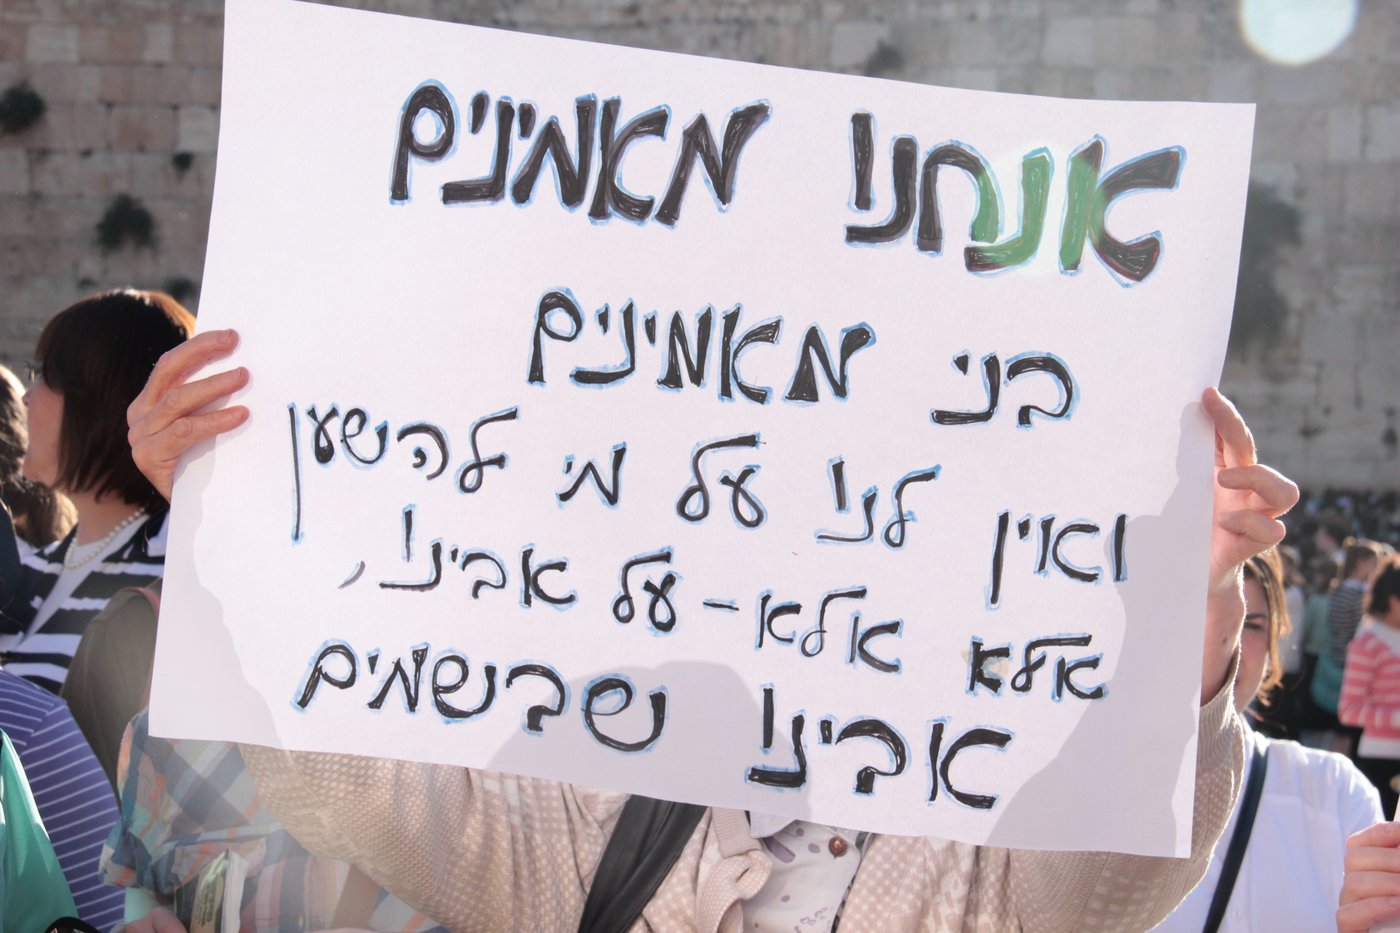 אנחנו מאמינים
בני מאמינים
ואין לנו על מי להשען
אלא אלא - על אבינו,
אבינו שבשמים